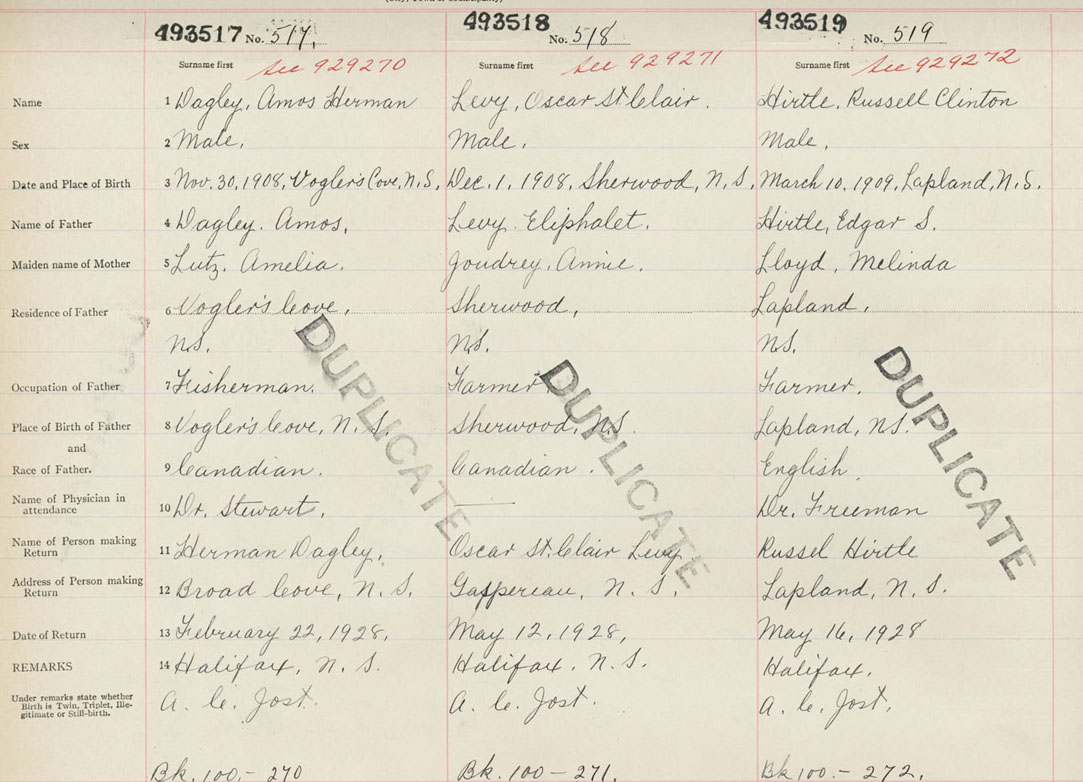 493517 No. 517, 493518 No. 518 493519 No. 519
Surname first See 929270 Surname first See 929271 Surname first See 929272
Name 1 Dagley, Amos Herman Levy, Oscar St Clair. Hirtle, Russell Clinton
Sex 2 Male, Male, Male,
Date and Place of Birth 3 Nov. 30, 1908, Vogler's Cove, N.S, Dec. 1, 1908, Sherwood, N.S, March 10, 1909, Lapland, N.S.
Name of Father 4 Dagley. Amos, Levy. Eliphalet. Hirtle, Edgar S.
Maiden name of Mother 5 Lutz, Amelia. Joudrey, Annie, Lloyd, Melinda
Residence of Father 6 Vogler's Cove, Sherwood, Lapland,
NS. NS. NS.
Occupation of Father 7 Fisherman. Farmer Farmer,
Place of Birth of Father 8 Vogler's Cove, N.S. Sherwood, NS. Lapland, NS.
and
Race of Father. 9 Canadian. Canadian. English,
Name of Physician in
attendance 10 Dr. Stewart, Dr. Freeman
Name of Person making
Return 11 Herman Dagley, Oscar St. Clair Levy Russel Hirtle
Address of Person making
Return 12 Broad Cove, N.S. Gaspereau, N.S. Lapland, N.S.
Date of Return 13 February 22, 1928, May 12, 1928, May 16, 1928
REMARKS 14 Halifax, N.S. Halifax. N.S. Halifax.
Under remarks state whether
Birth is Twin, Triplet, Ille-
gitimate or Still-birth. A. C. Jost. A. C. Jost. A. C. Jost.
Bk. 100. - 270 Bk. 100 - 271, Bk 100 - 272,
DUPLICATE
DUPLICATE
DUPLICATE